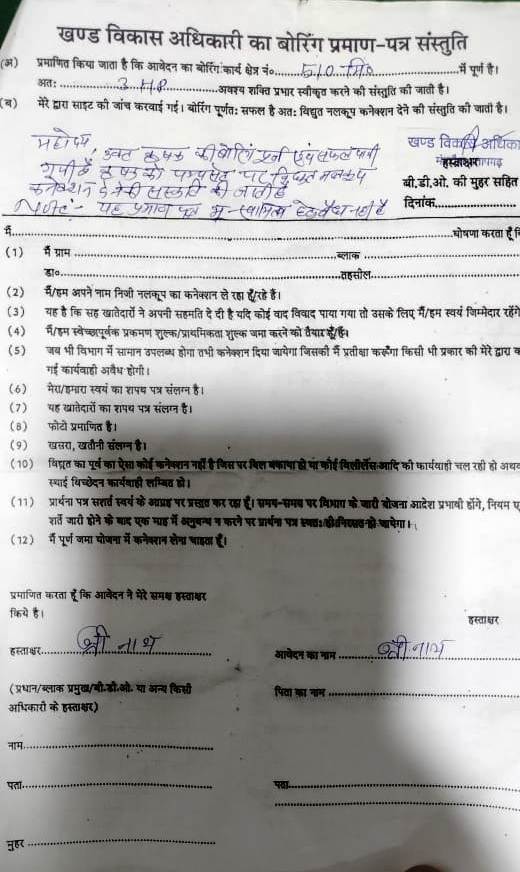 खण्ड विकास अधिकारी का बोरिंग प्रमाण-पत्र संस्तुति
(अ) प्रमाणित किया जाता है कि आवेदन का बोरिंग कार्य क्षेत्र नं०.......510 मि०.......में पूर्ण है।
अतः.......3 HP.......अवश्य शक्ति प्रभार स्वीकृत करने की संस्तुति की जाती है।
(ब) मेरे द्वारा साइट की जांच करवाई गई। बोरिंग पूर्णतः सफल है अतः विद्युत नलकूप कनेक्शन देने की संस्तुति की जाती है।
महोदय, उक्त कृषक की बोरिंग पूर्ण एवं सफल पायी
गयी है कृषक को पम्पसेट पर विद्युत नलकूप
कनेक्शन देने की संस्तुति की जाती है
Note:- यह प्रमाण पत्र भू-स्वामित्व हेतु वैध नही है
खण्ड विकास अधिका
हस्ताक्षर
बी.डी.ओ. की मुहर सहित
दिनांक..................
मैं............................घोषणा करता हूँ
(1) मैं ग्राम............................ब्लाक............................
डा०............................तहसील............................
(2) मैं/हम अपने नाम निजी नलकूप का कनेक्शन ले रहा हूँ/रहे हैं।
(3) यह है कि सह खातेदारों ने अपनी सहमति दे दी है यदि कोई वाद विवाद पाया गया तो उसके लिए मैं/हम स्वयं जिम्मेदार रहेंगे
(4) मैं/हम स्वेच्छापूर्वक प्रकमण शुल्क/प्राथमिकता शुल्क जमा करने को तैयार हूँ/हैं।
(5) जब भी विभाग में सामान उपलब्ध होगा तभी कनेक्शन दिया जायेगा जिसकी मैं प्रतीक्षा करूँगा किसी भी प्रकार की मेरे द्वारा
गई कार्यवाही अवैध होगी।
(6) मेरा/हमारा स्वयं का शपथ पत्र संलग्न है।
(7) यह खातेदारों का शपथ पत्र संलग्न है।
(8) फोटो प्रमाणित है।
(9) खसरा, खतौनी संलग्न है।
(10) विद्युत का पूर्व का ऐसा कोई कनेक्शन नहीं है जिस पर बिल बकाया हो या कोई विजीलेंस आदि की कार्यवाही चल रही हो अथव
स्थाई विच्छेदन कार्यवाही लम्बित हो।
(11) प्रार्थना पत्र सशर्त स्वयं के आग्रह पर प्रस्तुत कर रहा हूँ। समय-समय पर विभाग के जारी योजना आदेश प्रभावी होंगे, नियम ए
शर्ते जारी होने के बाद एक माह में अनुबन्ध न करने पर प्रार्थना पत्र स्वतः ही निरस्त हो जायेगा।
(12) मैं पूर्ण जमा योजना में कनेक्शन लेना चाहता हूँ।
प्रमाणित करता हूँ कि आवेदन ने मेरे समक्ष हस्ताक्षर
किये है।
हस्ताक्षर
हस्ताक्षर.......श्री नाथ.......
आवेदन का नाम.......श्री नाथ.......
(प्रधान/ब्लाक प्रमुख/बी.डी.ओ. या अन्य किसी
अधिकारी के हस्ताक्षर)
पिता का नाम............................
नाम............................
पता............................
पता............................
मुहर............................